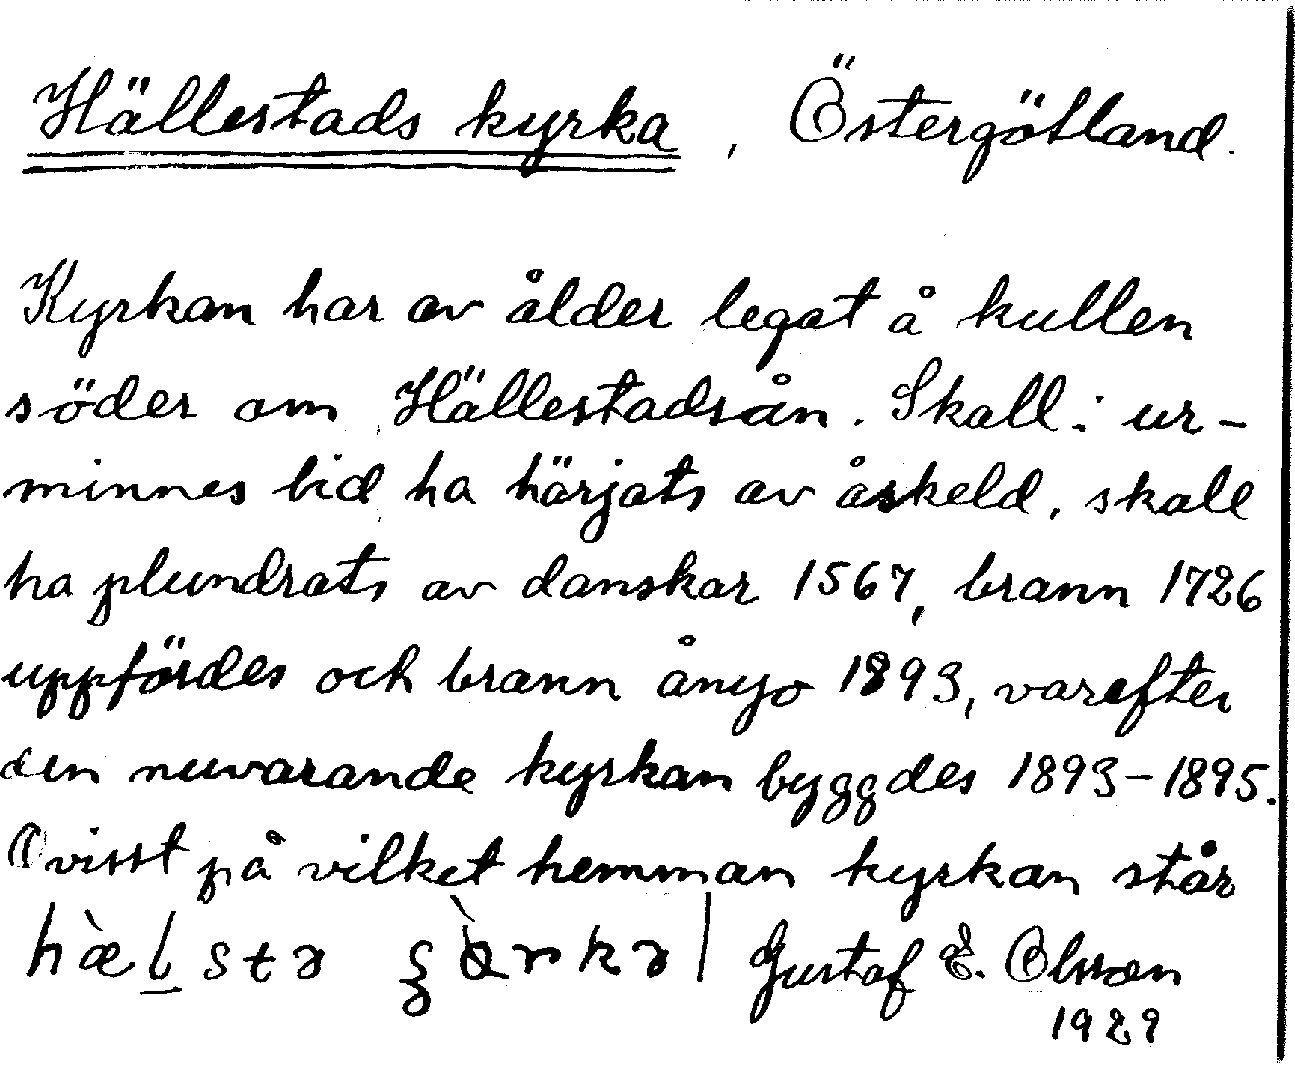 Hällestads kyrka, Östergötland.
Kyrkan har av ålder legat å kullen
söder om Hällestadsån. Skall i ur-
minnes tid ha härjats av åskeld, skall
ha plundrats av danskar 1567, brann 1726
uppfördes och brann ånyo 1893, varefter
den nuvarande kyrkan byggdes 1893-1895.
Ovisst på vilket hemman kyrkan står
Gustaf E. Olsson
1929